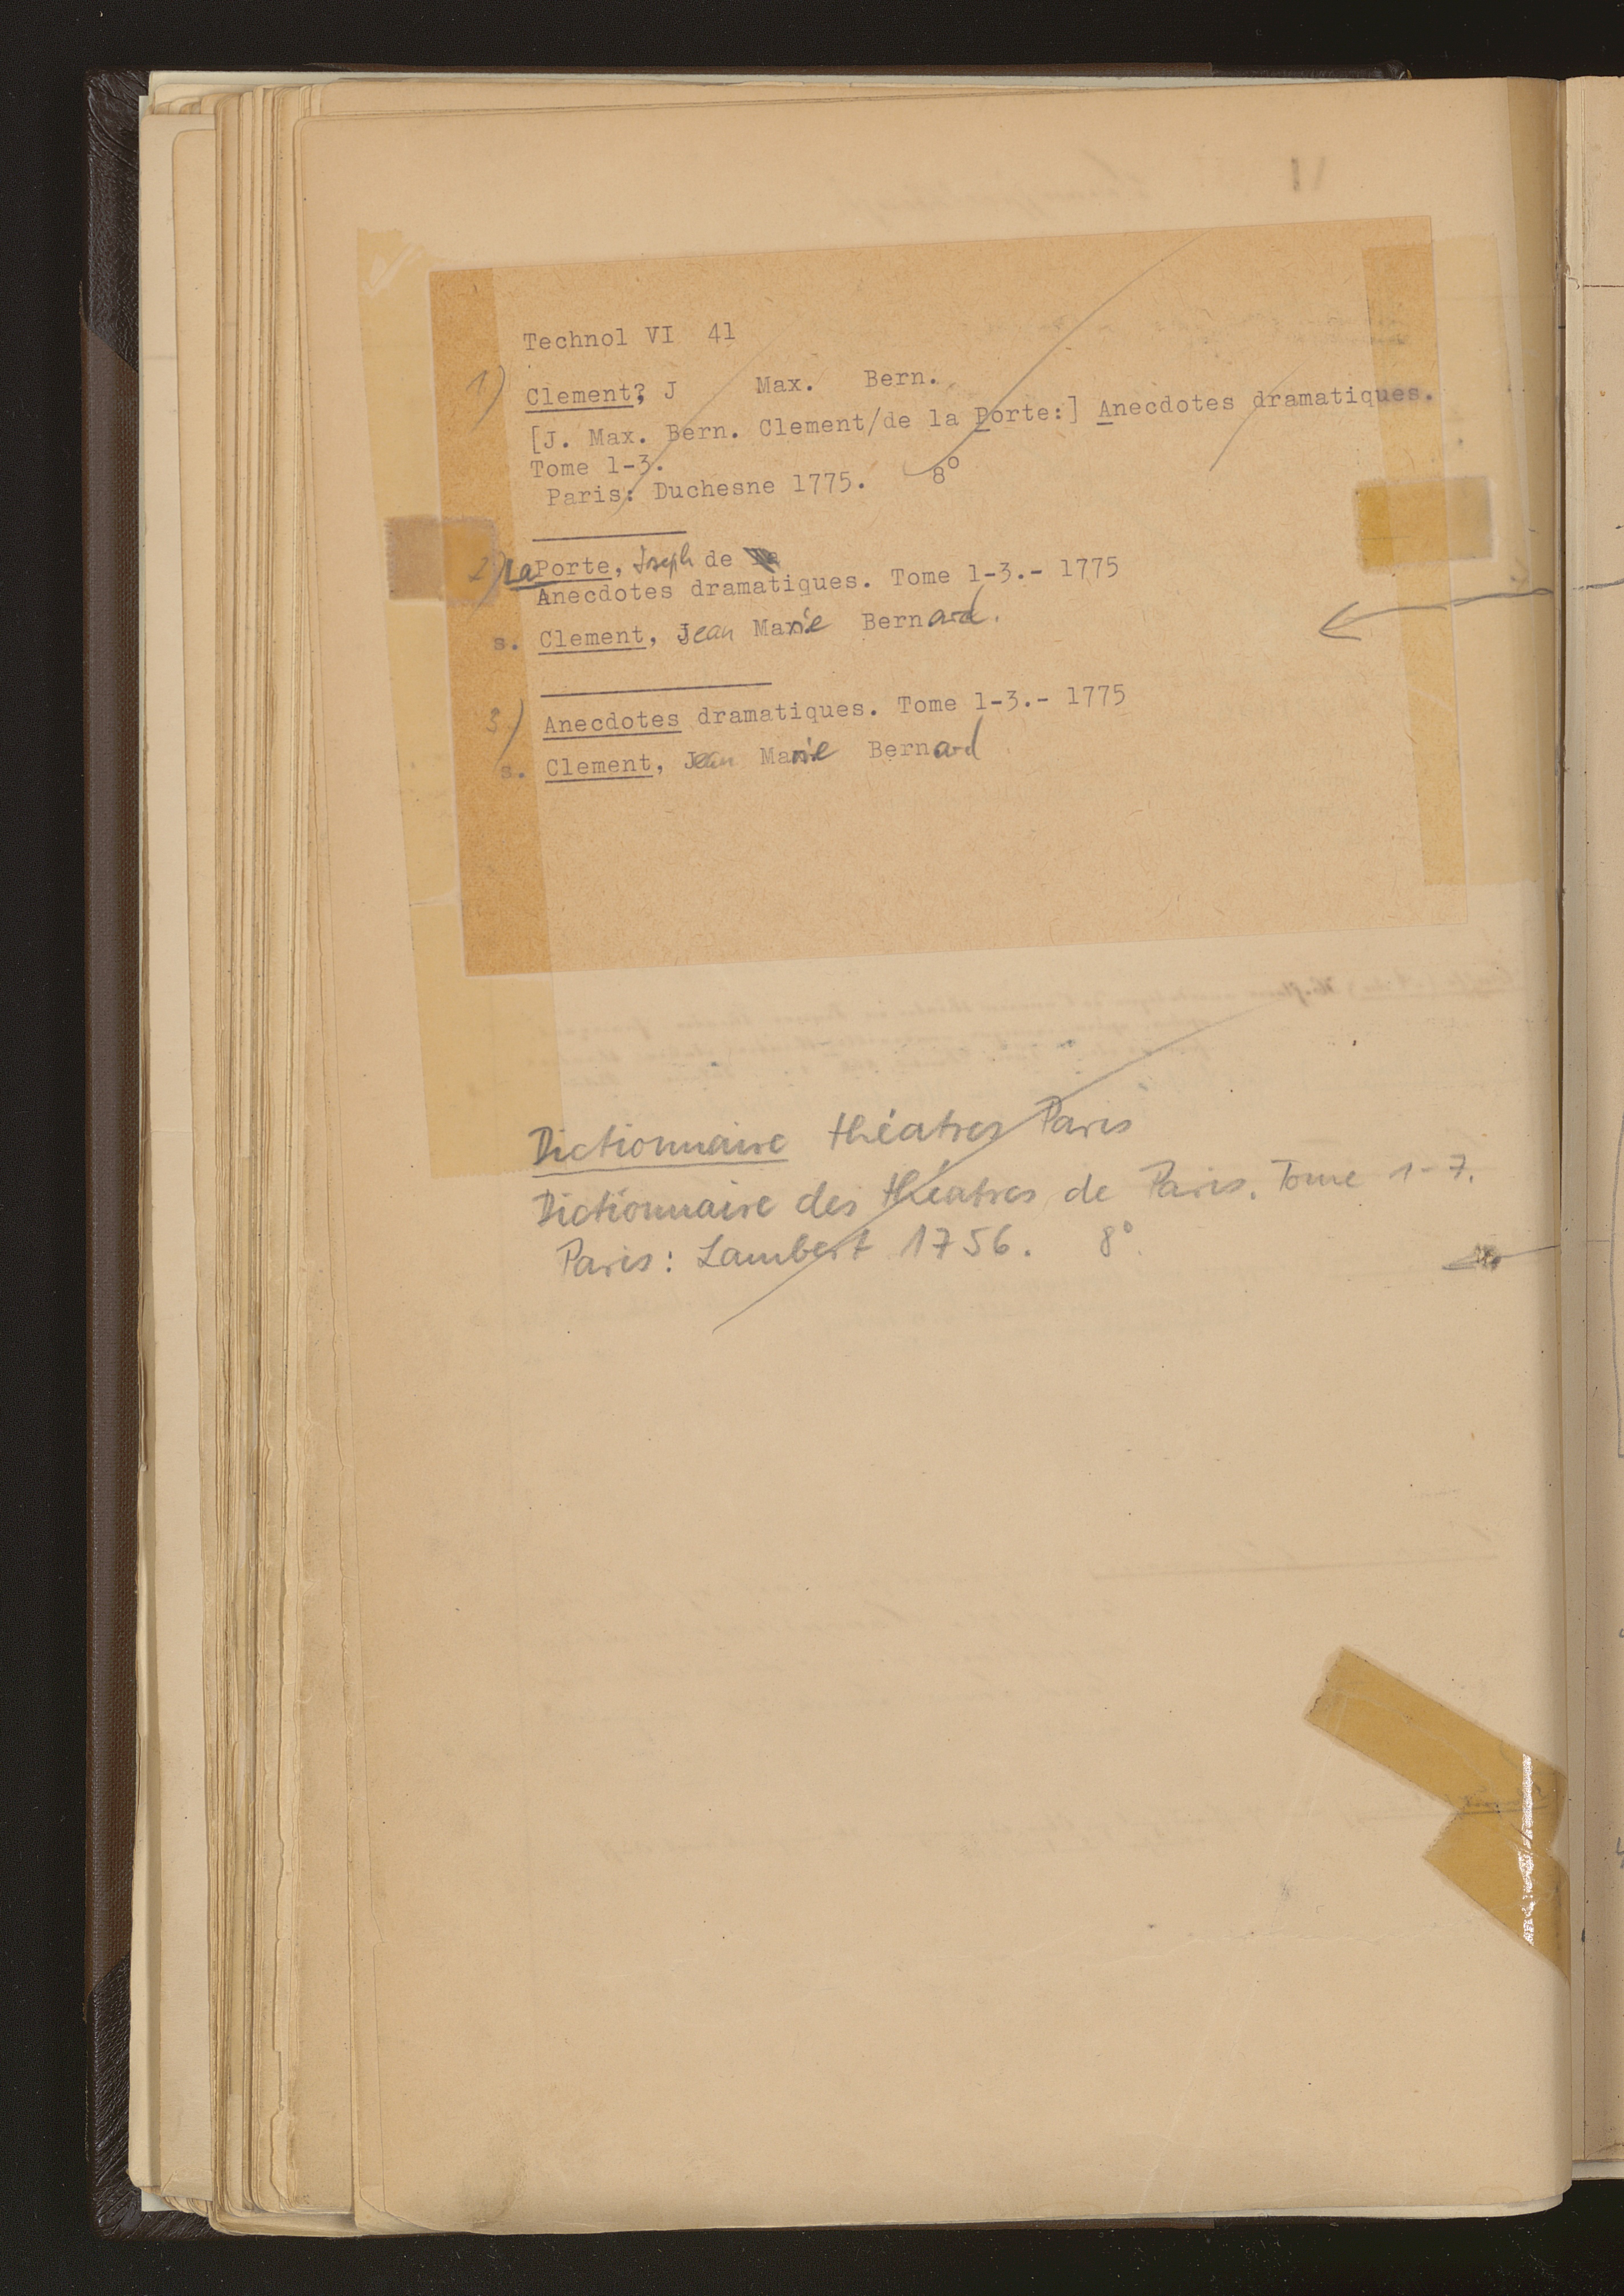 Technol VI 41
1) Clement?, J Max. Bern.
[J. Max. Bern. Clement/de la Porte:] Anecdotes dramatiques.
Tome 1-3.
Paris: Duchesne 1775. 8°
2) La Porte, Joseph de
Anecdotes dramatiques. Tome 1-3.- 1775
s. Clement, Jean Marie Bernard.
3) Anecdotes dramatiques. Tome 1-3.- 1775
s. Clement, Jean Marie Bernard
Dictionnaire théatres Paris
Dictionnaire des théatres de Paris. Tome 1-7.
Paris: Lambert 1756. 8°.